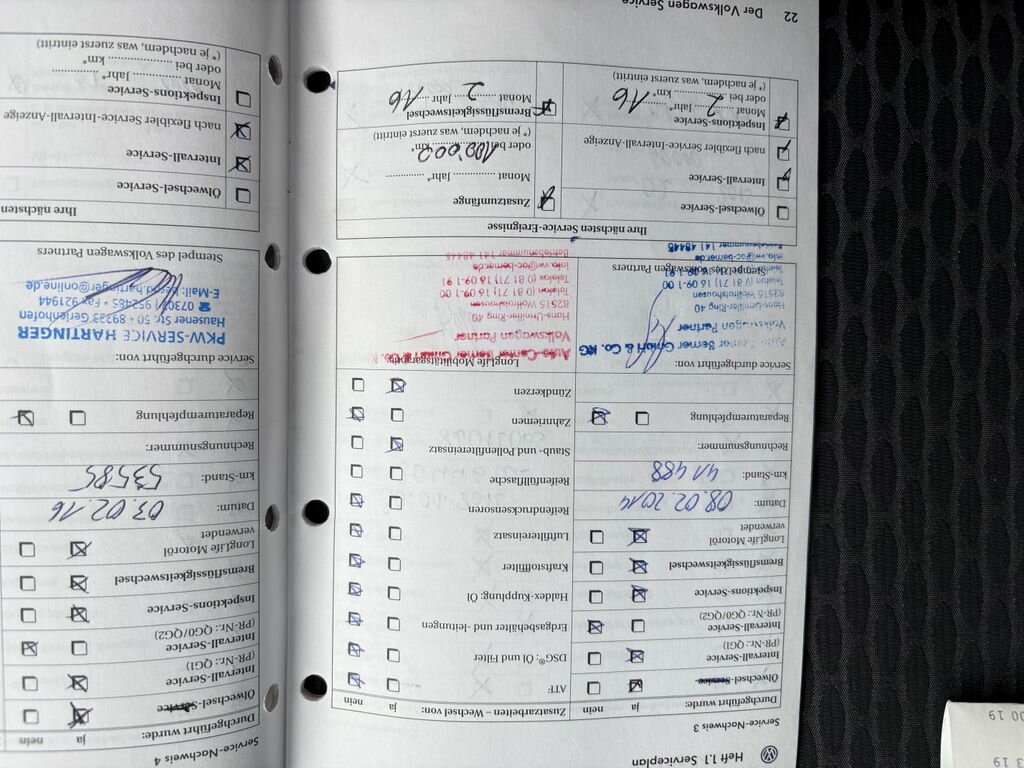 Heft 1.1 Serviceplan
Service-Nachweis 3
Durchgeführt wurde: ja nein
Ölwechsel-Service
Intervall-Service
(PR-Nr.: QG1)
Intervall-Service
(PR-Nr.: QG0/QG2)
Inspektions-Service
Bremsflüssigkeitswechsel
LongLife Motoröl
verwendet
Datum: 08.02.2014
km-Stand: 41488
Rechnungsnummer:
Reparaturempfehlung
Service durchgeführt von:
GmbH & Co. KG
Volkswagen Partner
Hans-Urmiller-Ring 40
82515 Wolfratshausen
Telefon (0 81 71) 16 09-1 00
Stempel des Volkswagen Partners
Betriebsnummer 141 48445
Zusatzarbeiten – Wechsel von: ja nein
ATF
DSG®: Öl und Filter
Erdgasbehälter und -leitungen
Haldex-Kupplung: Öl
Kraftstofffilter
Luftfiltereinsatz
Reifendrucksensoren
Reifenfüllflasche
Staub- und Pollenfiltereinsatz
Zahnriemen
Zündkerzen
LongLife Mobilitätsgarantie:
Auto-Center Berner GmbH & Co. KG
Volkswagen Partner
Hans-Urmiller-Ring 40
82515 Wolfratshausen
Telefon (0 81 71) 16 09-1 00
Telefax (0 81 71) 16 09-1 91
info.vw@ac-berner.de
Betriebsnummer 141 48445
Ihre nächsten Service-Ereignisse
Ölwechsel-Service
Intervall-Service
nach flexibler Service-Intervall-Anzeige
Inspektions-Service
Monat 2 Jahr* 16
oder bei km*
(* je nachdem, was zuerst eintritt)
Zusatzumfänge
Monat Jahr*
oder bei 100.000 km*
(* je nachdem, was zuerst eintritt)
Bremsflüssigkeitswechsel
Monat 2 Jahr 16
22 Der Volkswagen Service
Service-Nachweis 4
Durchgeführt wurde: ja nein
Ölwechsel-Service
Intervall-Service
(PR-Nr.: QG1)
Intervall-Service
(PR-Nr.: QG0/QG2)
Inspektions-Service
Bremsflüssigkeitswechsel
LongLife Motoröl
verwendet
Datum: 03.02.16
km-Stand: 53585
Rechnungsnummer:
Reparaturempfehlung
Service durchgeführt von:
PKW-SERVICE HARTINGER
Hausener Str. 50 · 89233 Gerlenhofen
☎ 07307 / 952485 · Fax 921944
E-Mail: bernd.hartinger@online.de
Stempel des Volkswagen Partners
Ihre nächsten
Ölwechsel-Service
Intervall-Service
nach flexibler Service-Intervall-Anzeige
Inspektions-Service
Monat Jahr*
oder bei km*
(* je nachdem, was zuerst eintritt)